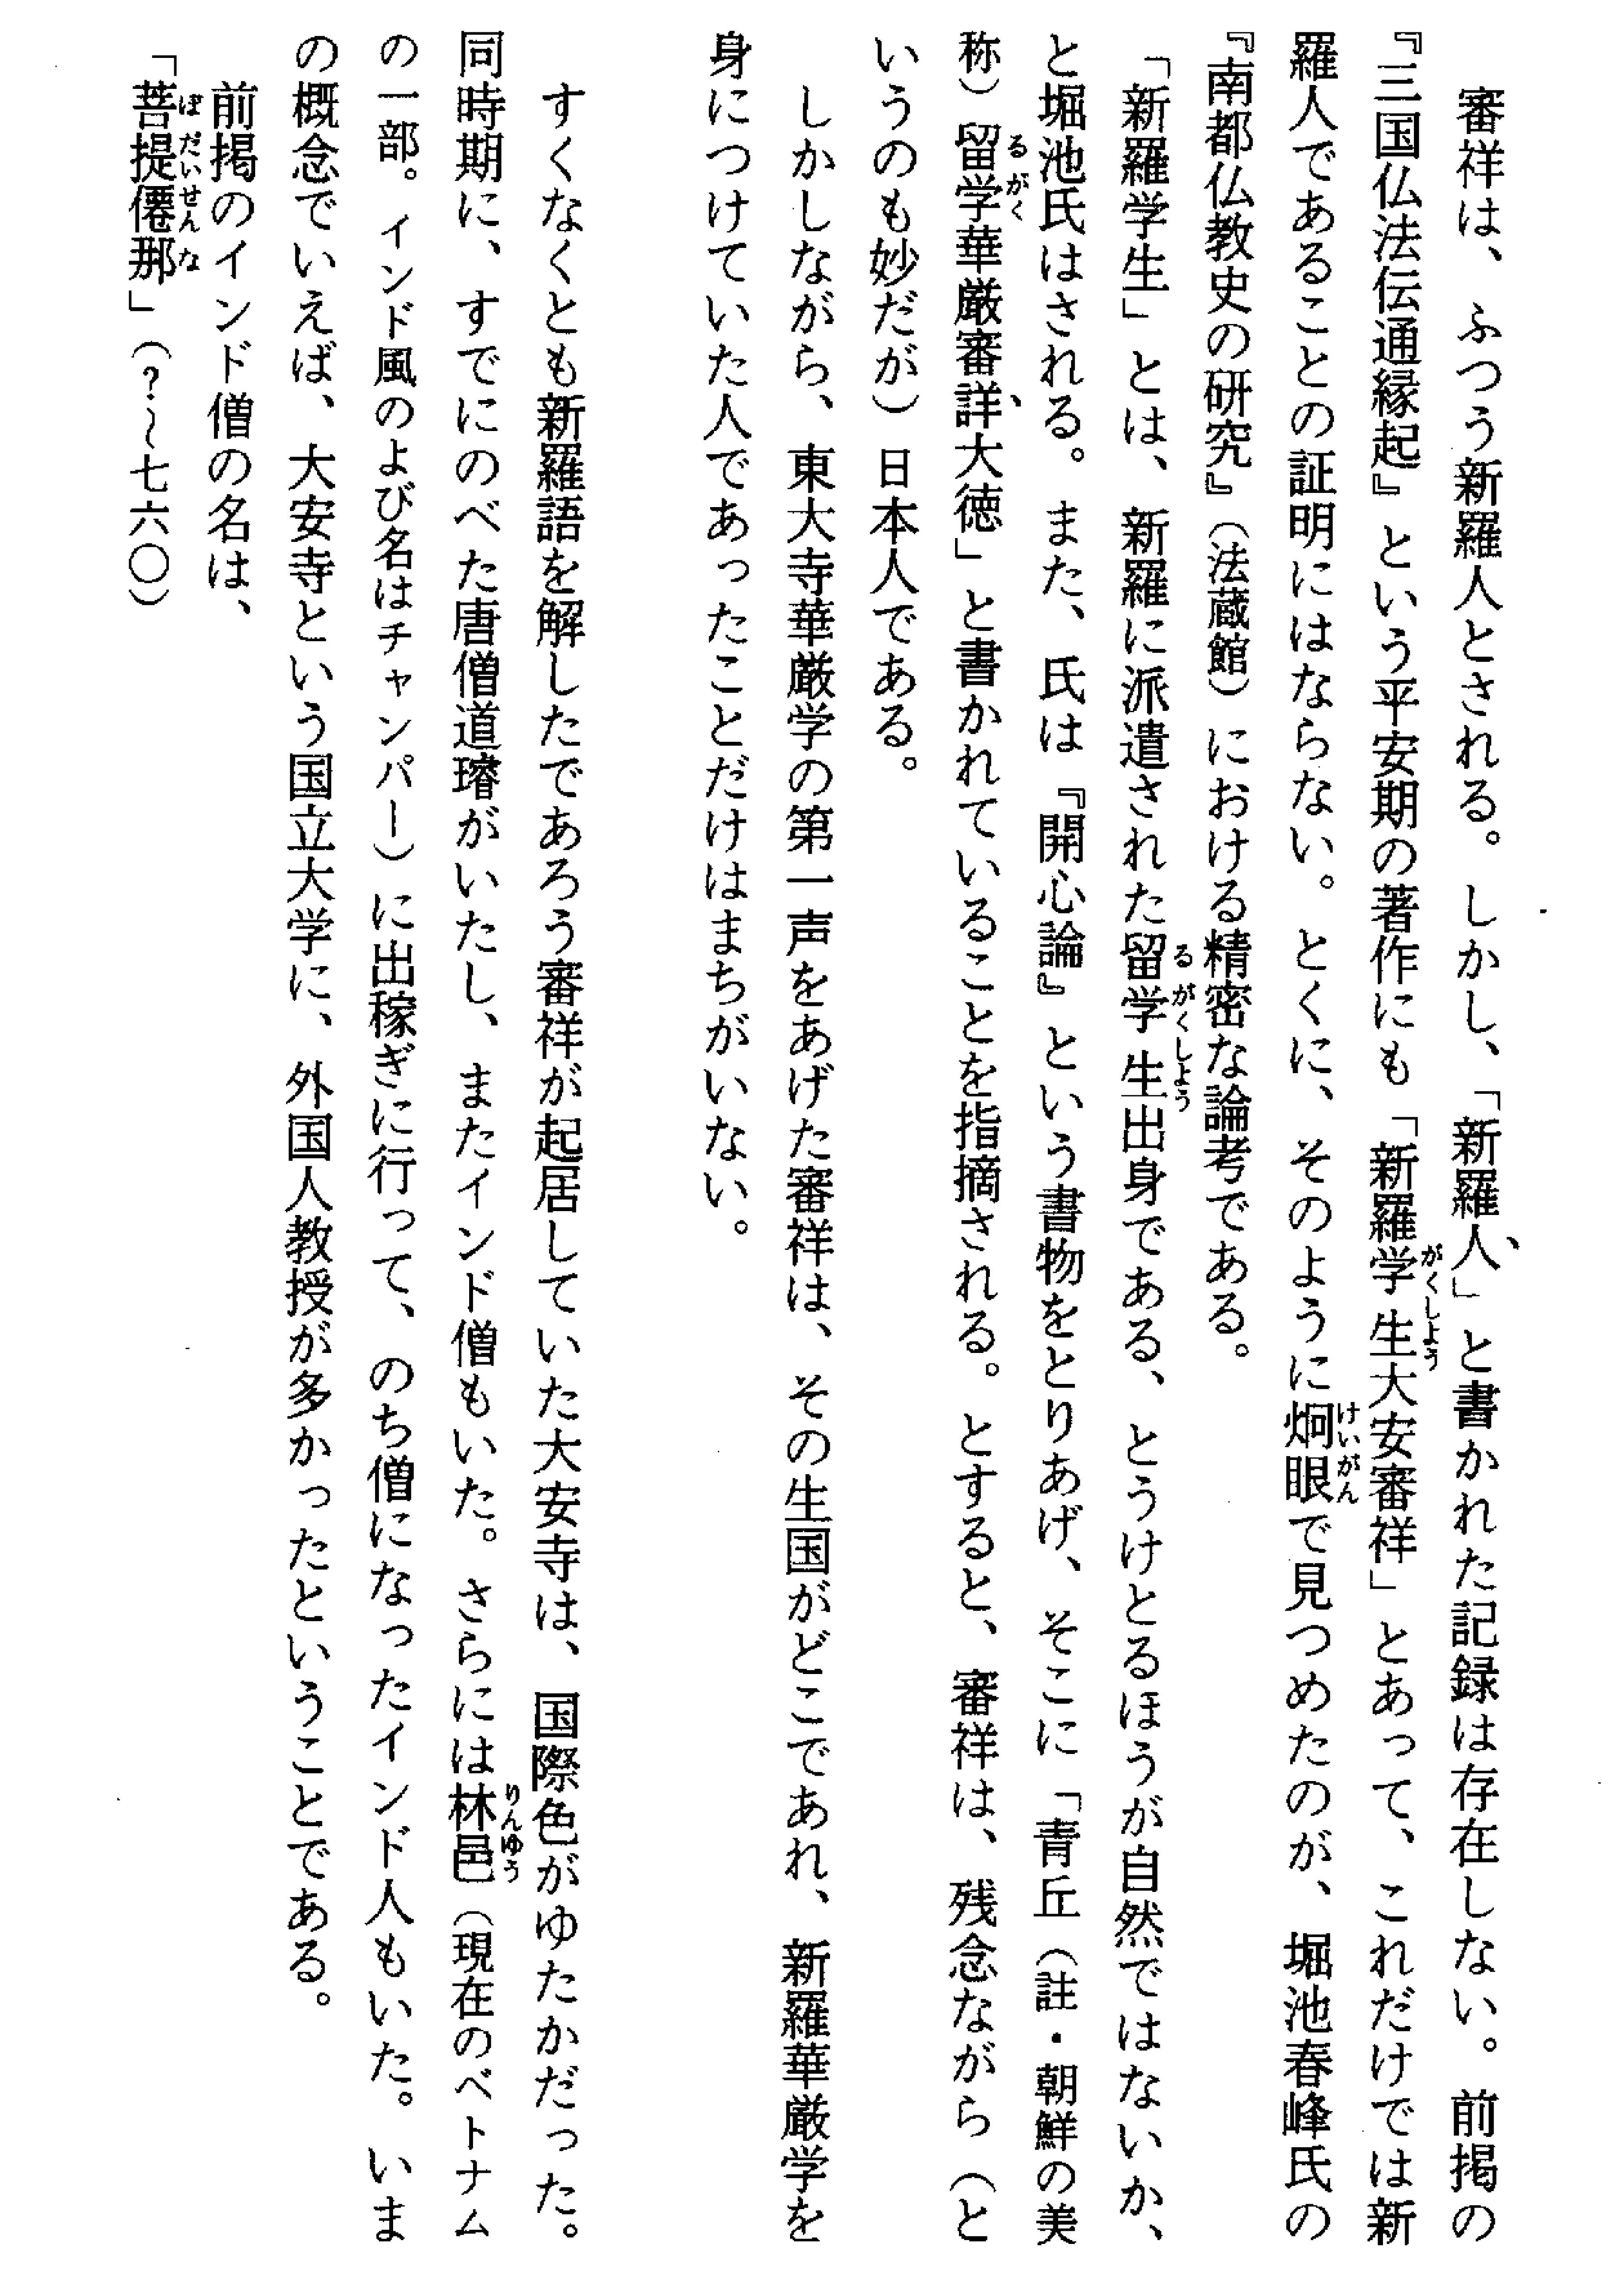 審祥は、ふつう新羅人とされる。しかし、「新羅人」と書かれた記録は存在しない。前掲の
『三国仏法伝通縁起』という平安期の著作にも「新羅学生大安審祥」とあって、これだけでは新
羅人であることの証明にはならない。とくに、そのように炯眼で見つめたのが、堀池春峰氏の
『南都仏教史の研究』(法蔵館)における精密な論考である。
「新羅学生」とは、新羅に派遣された留学生出身である、とうけとるほうが自然ではないか、
と堀池氏はされる。また、氏は『開心論』という書物をとりあげ、そこに「青丘(註・朝鮮の美
称)留学華厳審詳大徳」と書かれていることを指摘される。とすると、審祥は、残念ながら(と
いうのも妙だが)日本人である。
しかしながら、東大寺華厳学の第一声をあげた審祥は、その生国がどこであれ、新羅華厳学を
身につけていた人であったことだけはまちがいない。
すくなくとも新羅語を解したであろう審祥が起居していた大安寺は、国際色がゆたかだった。
同時期に、すでにのべた唐僧道璿がいたし、またインド僧もいた。さらには林邑(現在のベトナム
の一部。インド風のよび名はチャンパー)に出稼ぎに行って、のち僧になったインド人もいた。いま
の概念でいえば、大安寺という国立大学に、外国人教授が多かったということである。
前掲のインド僧の名は、
「菩提僊那」(?〜七六〇)